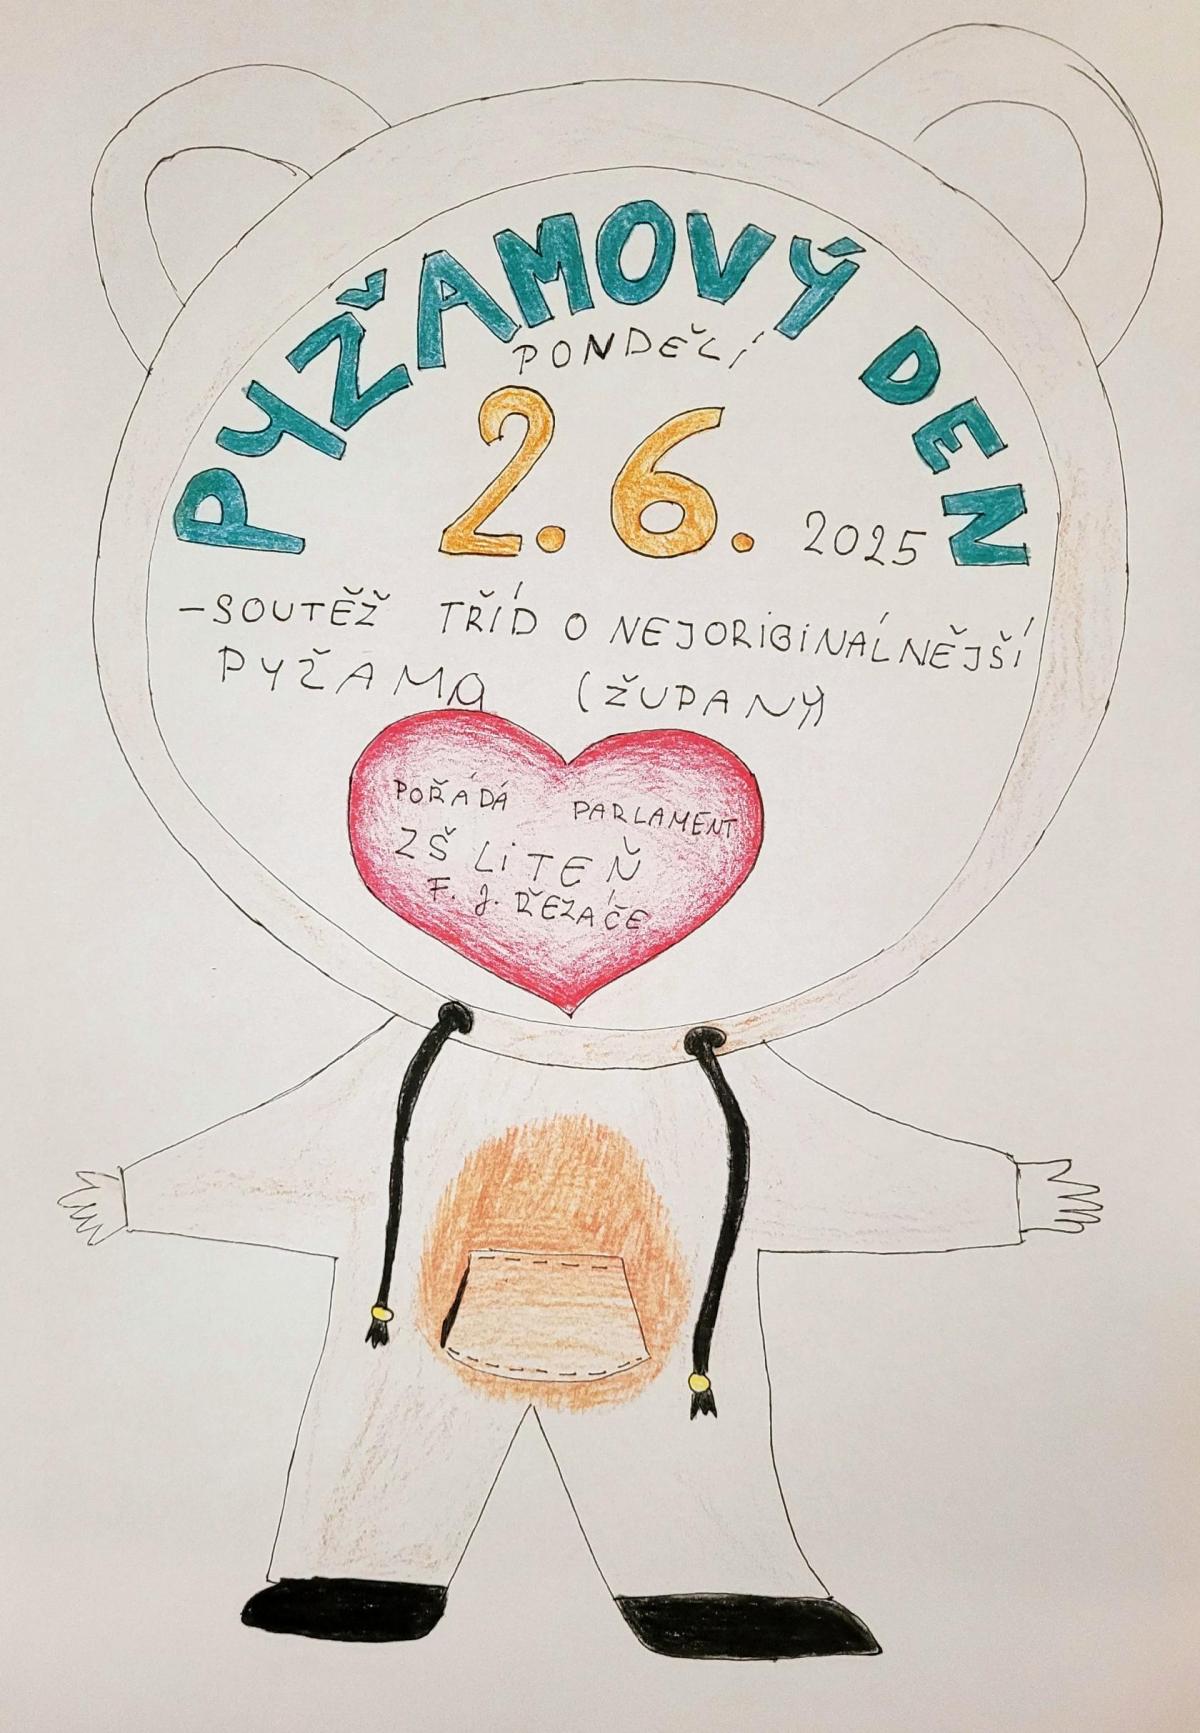 PYŽAMOVÝ DEN
PONDĚLÍ
2. 6. 2025
-SOUTĚŽ TŘÍD O NEJORIGINÁLNĚJŠÍ
PYŽAMA (ŽUPANY)
POŘÁDÁ PARLAMENT
ZŠ LITEŇ
F. J. ŘEZÁČE